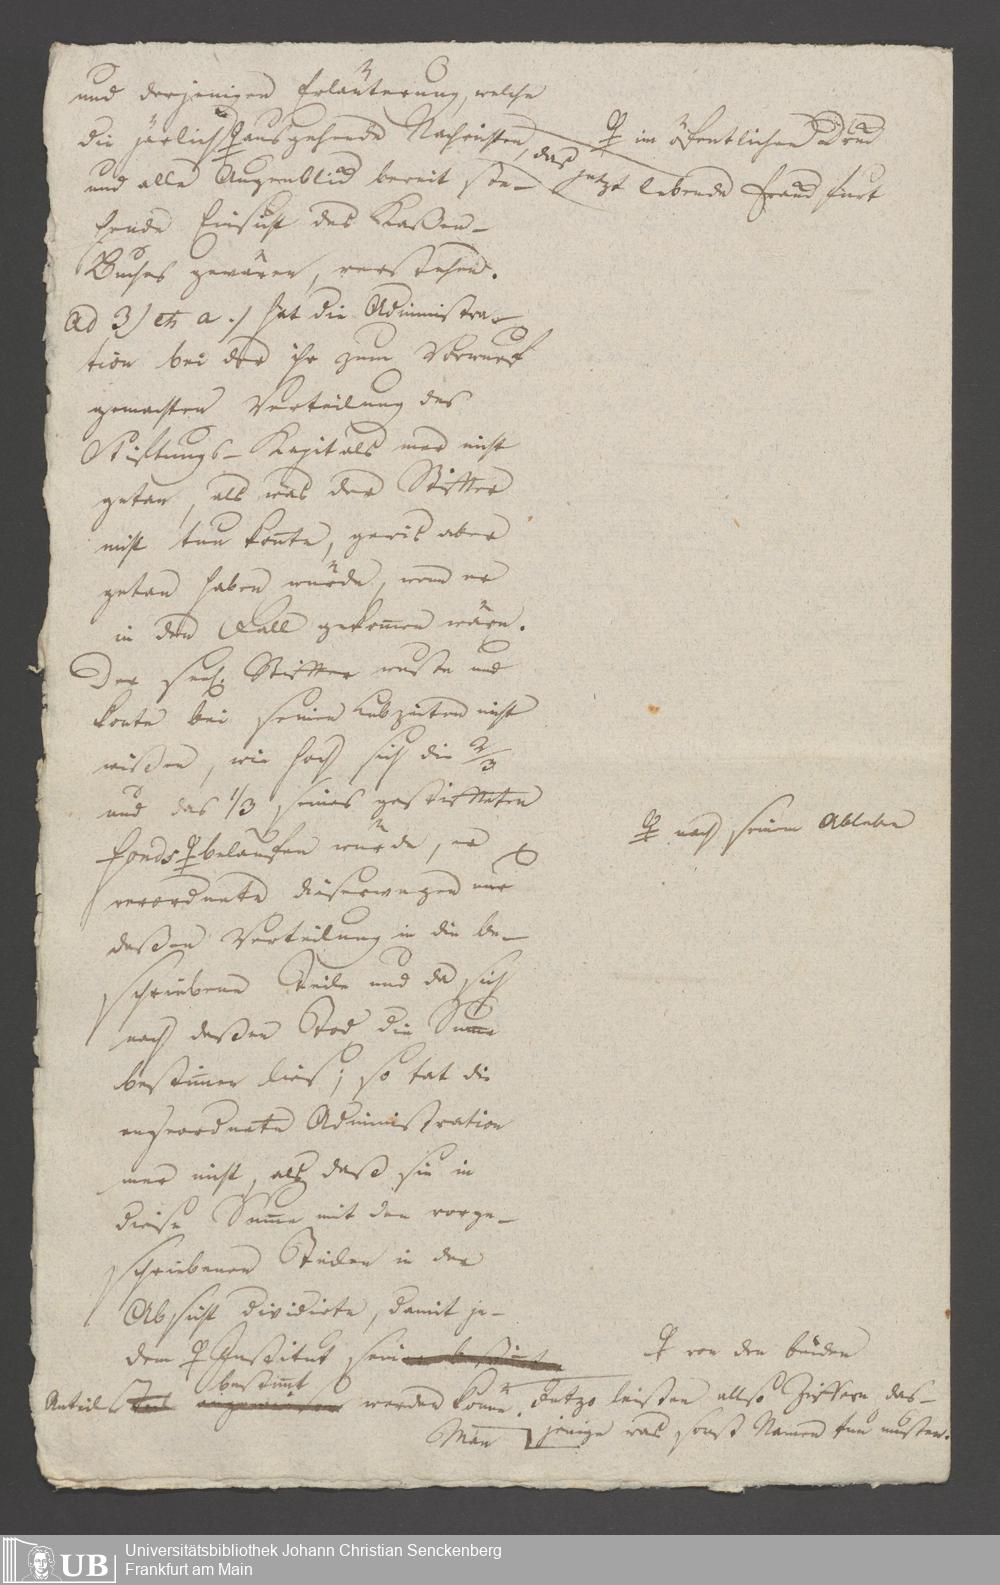 und derjenigen Erläuterung, welche
die järlich ausgehende Nachrichten, das
im öffentlichen Druck
und alle Augenblick bereit ste-
jetzt lebende Frankfurt
hende Einsicht des Kaßen-
Buches gewären, verstehen.
Ad 3) et a.) hat die Administra-
tion bei der ihr zum Vorwurf
gemachten Verteilung des
Stiftungs-Kapitals mer nicht
getan, als was der Stifter
nicht tun konte, gewis aber
getan haben würde, wenn er
in den Fall gekommen wäre.
Der seel. Stifter wuste und
konte bei seinen Lebzeiten nicht
wißen, wie hoch sich die 2/3
und das 1/3 seines gestifteten
Fonds belaufen würde, er
nach seinem Ableben
verordnete dieserwegen nur
deßen Verteilung in die be-
schriebene Teile und da sich
nach deßen Tod die Summe
bestimmen lies; so tat die
angeordnete Administration
mer nicht, als daß sie in
diese Summe mit den vorge-
schriebenen Teilen in der
Absicht dividirte, damit je-
dem Institut sein bestimmter
von den beiden
bestimmt
Anteil angewiesen werden könne. Jetzo leisten allso Ziffern das-
Man jenige was sonst Namen tun musten.
Universitätsbibliothek Johann Christian Senckenberg
Frankfurt am Main
UB